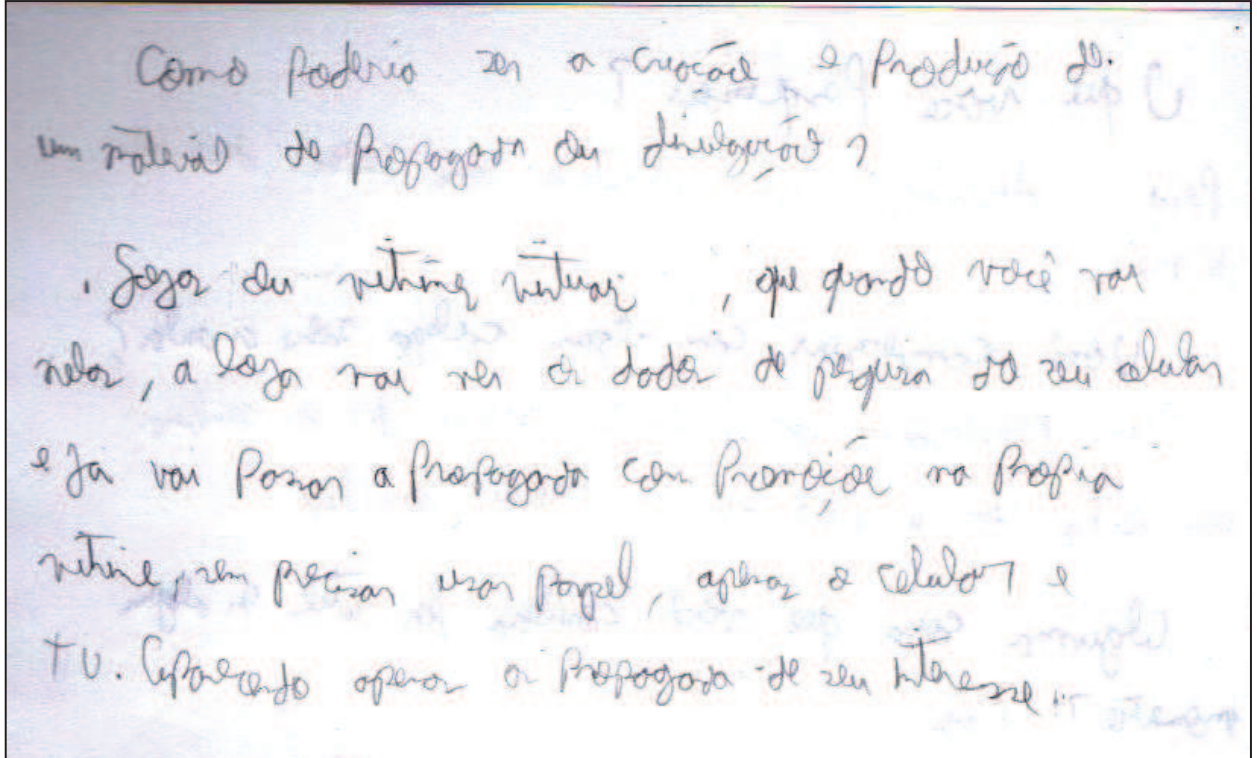 Como poderia ser a criação e Produção de.
um material de Propaganda ou divulgação?
. Lojas ou vitrines virtuais, que quando você vai
nelas, a loja vai ver os dados de pesquisa do seu celular
e Já vai Passar a Propaganda com Promoções na Propria
vitrine, sem precisar usar papel, apenas o celular e
TV. Aparecendo apenas a Propaganda de seu interesse...